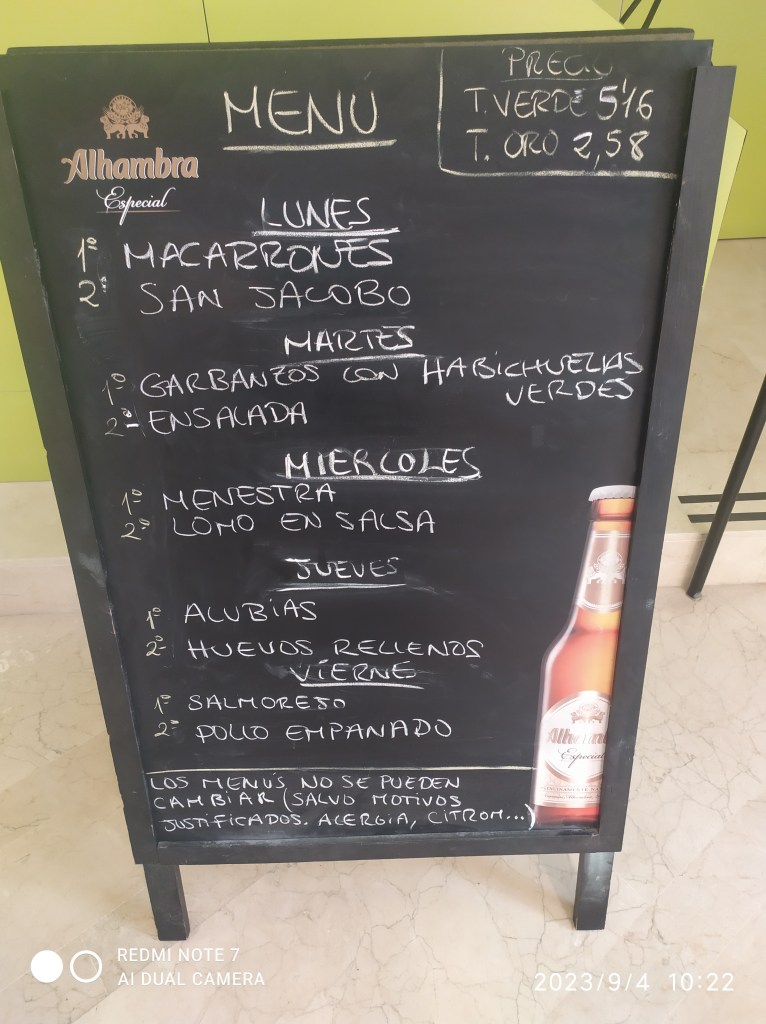 MENÚ
PRECIO
T. VERDE 5'16
T. ORO 2,58
Alhambra
Especial
LUNES
1º MACARRONES
2º SAN JACOBO
MARTES
1º GARBANZOS CON HABICHUELAS
VERDES
2º ENSALADA
MIERCOLES
1º MENESTRA
2º LOMO EN SALSA
JUEVES
1º ALUBIAS
2º HUEVOS RELLENOS
VIERNE
1º SALMOREJO
2º POLLO EMPANADO
LOS MENÚS NO SE PUEDEN
CAMBIAR (SALVO MOTIVOS
JUSTIFICADOS. ALERGIA, CITROM...)
Alhambra
Especial
REDMI NOTE 7
AI DUAL CAMERA
2023/9/4 10:22